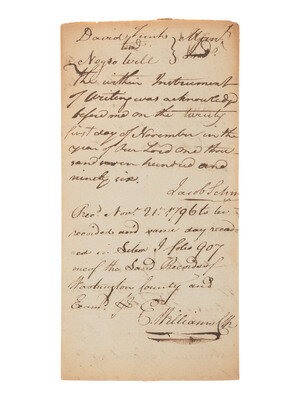 David Links } Man
to }
Negro Will }
the within Instrument
of Writing was acknowledged
before me on the Twenty
first day of November in the
year of Our Lord one thou
sand seven hundred and
ninety six.
Jacob Schn
Rec.d Nov.r 21st 1796 to be
recorded and same day recor
ded in Liber I folio 907
one of the Land Records of
Washington County and
Exam.d
E. Williams Clk